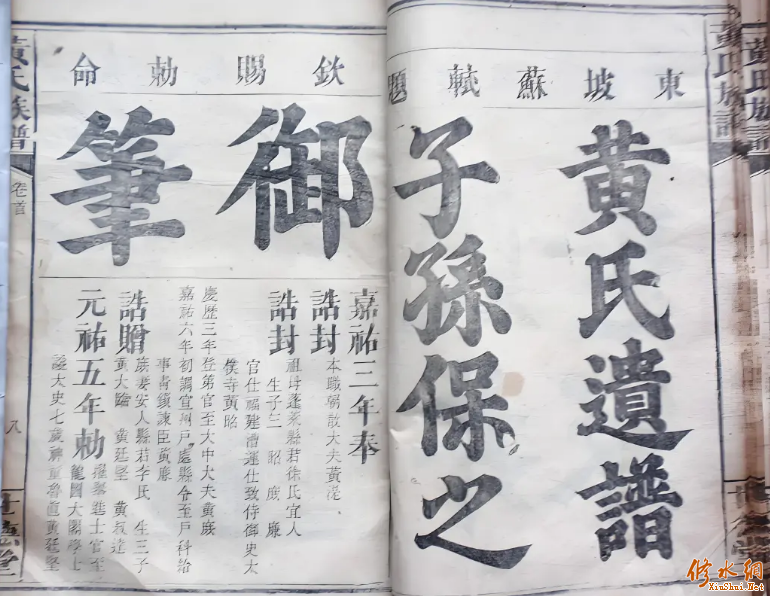 東坡蘇軾題
黄氏遺譜
子孫保之
欽賜勅命
御筆
嘉祐三年奉
誥封
本職朝散大夫黃湜
祖母蓬萊縣君徐氏宜人
生子三 昭 庶 廉
誥封
官仕福建漕運仕致侍御史太
僕寺黃昭
慶歷三年登第官至大中大夫黃庶
嘉祐六年初調宣州戶處縣令至戶科給
事書鎮諫臣黃廉
誥贈
庶妻安人縣君李氏 生三子
黃大臨 黃廷堅 黃叔達
元祐五年勅
進士官至
龍圖大閣學士
謚太史七歲神童魯直黃廷堅
黃氏族譜
卷首
八
黃氏族譜
黃氏族譜
修水網
XiuShui.Net